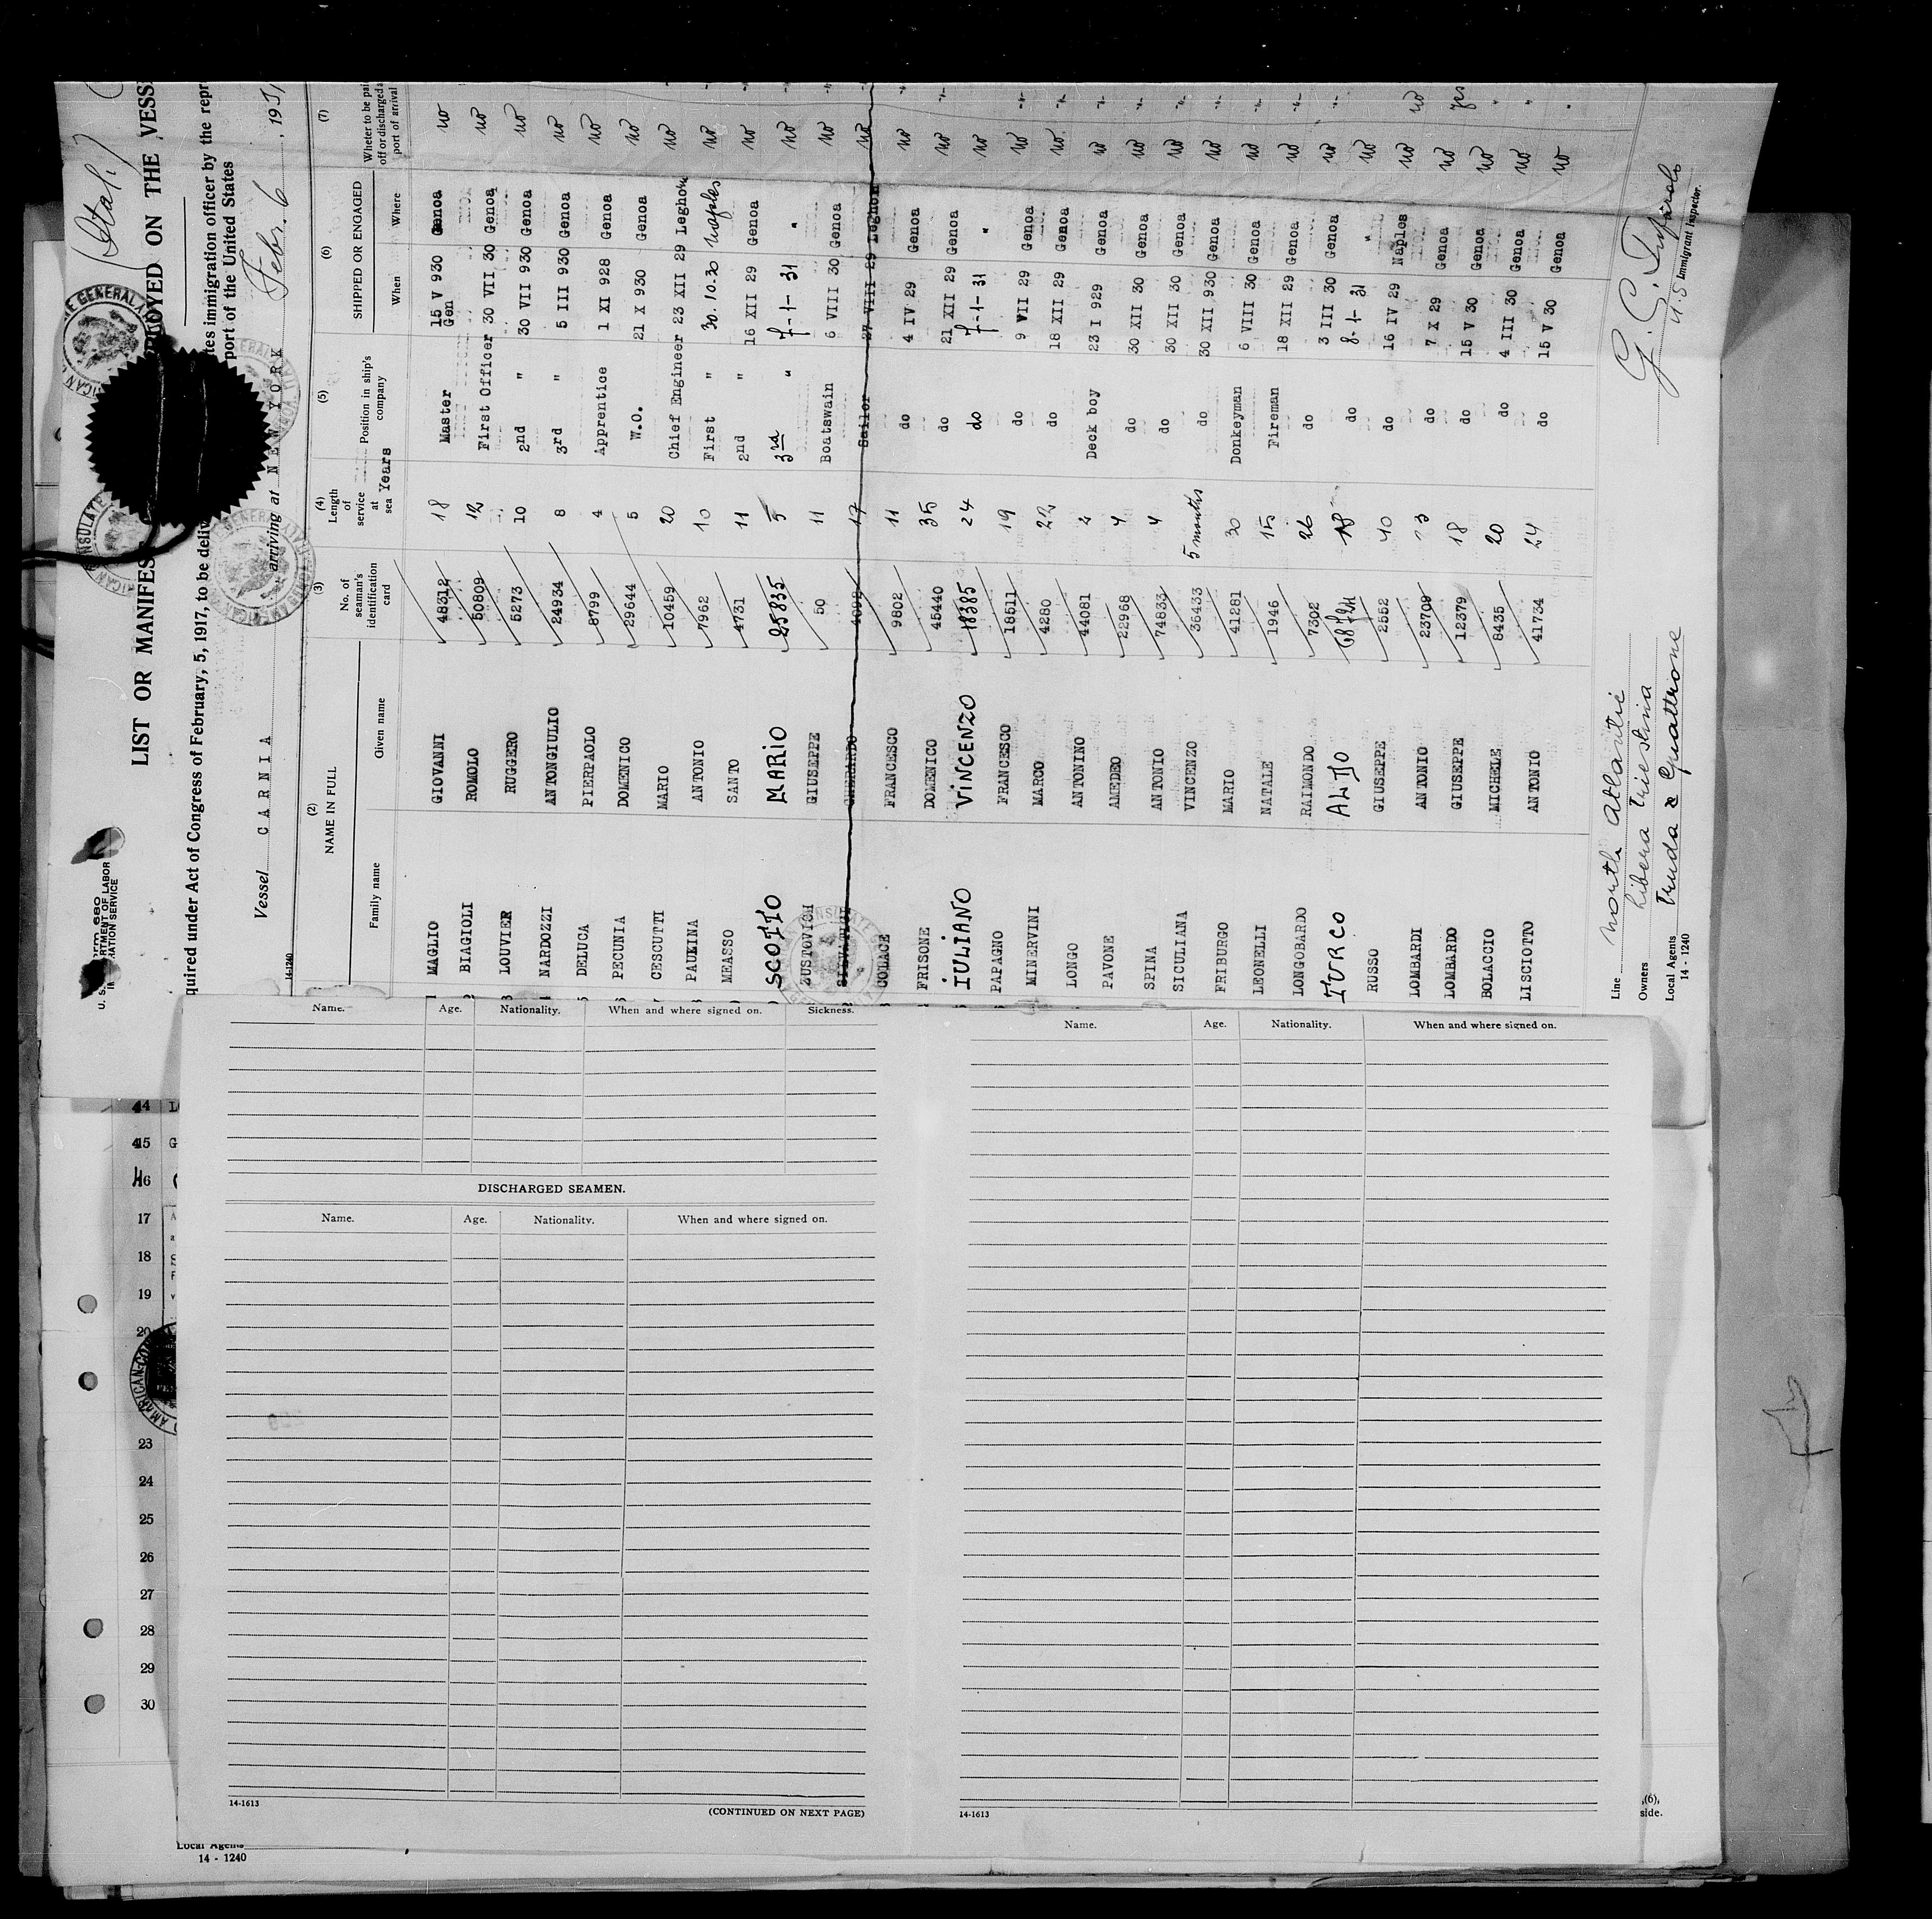 (Ital.)
U. S. DEPARTMENT OF LABOR
LIST OR MANIFEST EMPLOYED ON THE VESS
quired under Act of Congress of February, 5, 1917, to be deliv tes immigration officer by the repr
port of the United States
Vessel CARNIA arriving at NEW YORK Febr. 6, 1931
14-1240
(2) (3) (4) (5) (6) (7)
NAME IN FULL No. of seaman's identification card Length of service at sea Years Position in ship's company SHIPPED OR ENGAGED Wheter to be pai off or discharged a port of arrival
Family name Given name When Where
MAGLIO GIOVANNI 48312 18 Master 15 V 930 Genoa no
Gen
BIAGIOLI ROMOLO 50809 12 First Officer 30 VII 30 Genoa no
LOUVIER RUGGERO 5273 10 2nd " 30 VII 930 Genoa no
NARDOZZI ANTONGIULIO 24934 8 3rd " 5 III 930 Genoa no
DELUCA PIERPAOLO 8799 4 Apprentice 1 XI 928 Genoa no
PECUNIA DOMENICO 29644 5 W.O. 21 X 930 Genoa no
CESCUTTI MARIO 10459 20 Chief Engineer 23 XII 29 Leghorn no
PAUKINA ANTONIO 7962 10 First " 30.10.30 Naples no
MEASSO SANTO 4731 11 2nd " 16 XII 29 Genoa no
SCOTTO MARIO 25835 5 3rd " 7-1-31 " no
ZUSTOVICH GIUSEPPE 50 11 Boatswain 6 VIII 30 Genoa no
17 Sailor 27 VIII 29 Leghorn no
COLACE FRANCESCO 9802 11 do 4 IV 29 Genoa no
FRISONE DOMENICO 45440 35 do 21 XII 29 Genoa no
IULIANO VINCENZO 18385 24 do 7-1-31 " no
PAPAGNO FRANCESCO 18511 19 do 9 VII 29 Genoa no
MINERVINI MARCO 4280 22 do 18 XII 29 Genoa no
LONGO ANTONINO 44081 2 Deck boy 23 I 929 Genoa no
PAVONE AMEDEO 22968 4 do 30 XII 30 Genoa no
SPINA ANTONIO 74833 4 do 30 XII 30 Genoa no
SICULIANA VINCENZO 36433 5 months do 30 XII 930 Genoa no
FRIBURGO MARIO 41281 30 Donkeyman 6 VIII 30 Genoa no
LEONELLI NATALE 1946 15 Fireman 18 XII 29 Genoa no
LONGOBARDO RAIMONDO 7302 26 do 3 III 30 Genoa no
TURCO 18 do 8-1-31 " no
RUSSO GIUSEPPE 2552 40 do 16 IV 29 Naples no no
LOMBARDI ANTONIO 23709 do 7 X 29 Genoa no yes
LOMBARDO GIUSEPPE 12379 18 do 15 V 30 Genoa no "
BOLACCIO MICHELE 8435 20 do 4 III 30 Genoa no "
LISCIOTTO ANTONIO 41734 24 do 15 V 30 Genoa no "
Line North Atlantic
Owners Libera Triestina
Local Agents Truda & Quattrone
14 - 1240
U.S Immigrant Inspector.
Name. Age. Nationality. When and where signed on. Sickness.
DISCHARGED SEAMEN.
Name. Age. Nationality. When and where signed on.
14-1613 (CONTINUED ON NEXT PAGE)
Name. Age. Nationality. When and where signed on.
14-1613
44
45 G
46
17
18
19
20
23
24
25
26
27
28
29
30
(6),
side.
Local Agents
14 - 1240